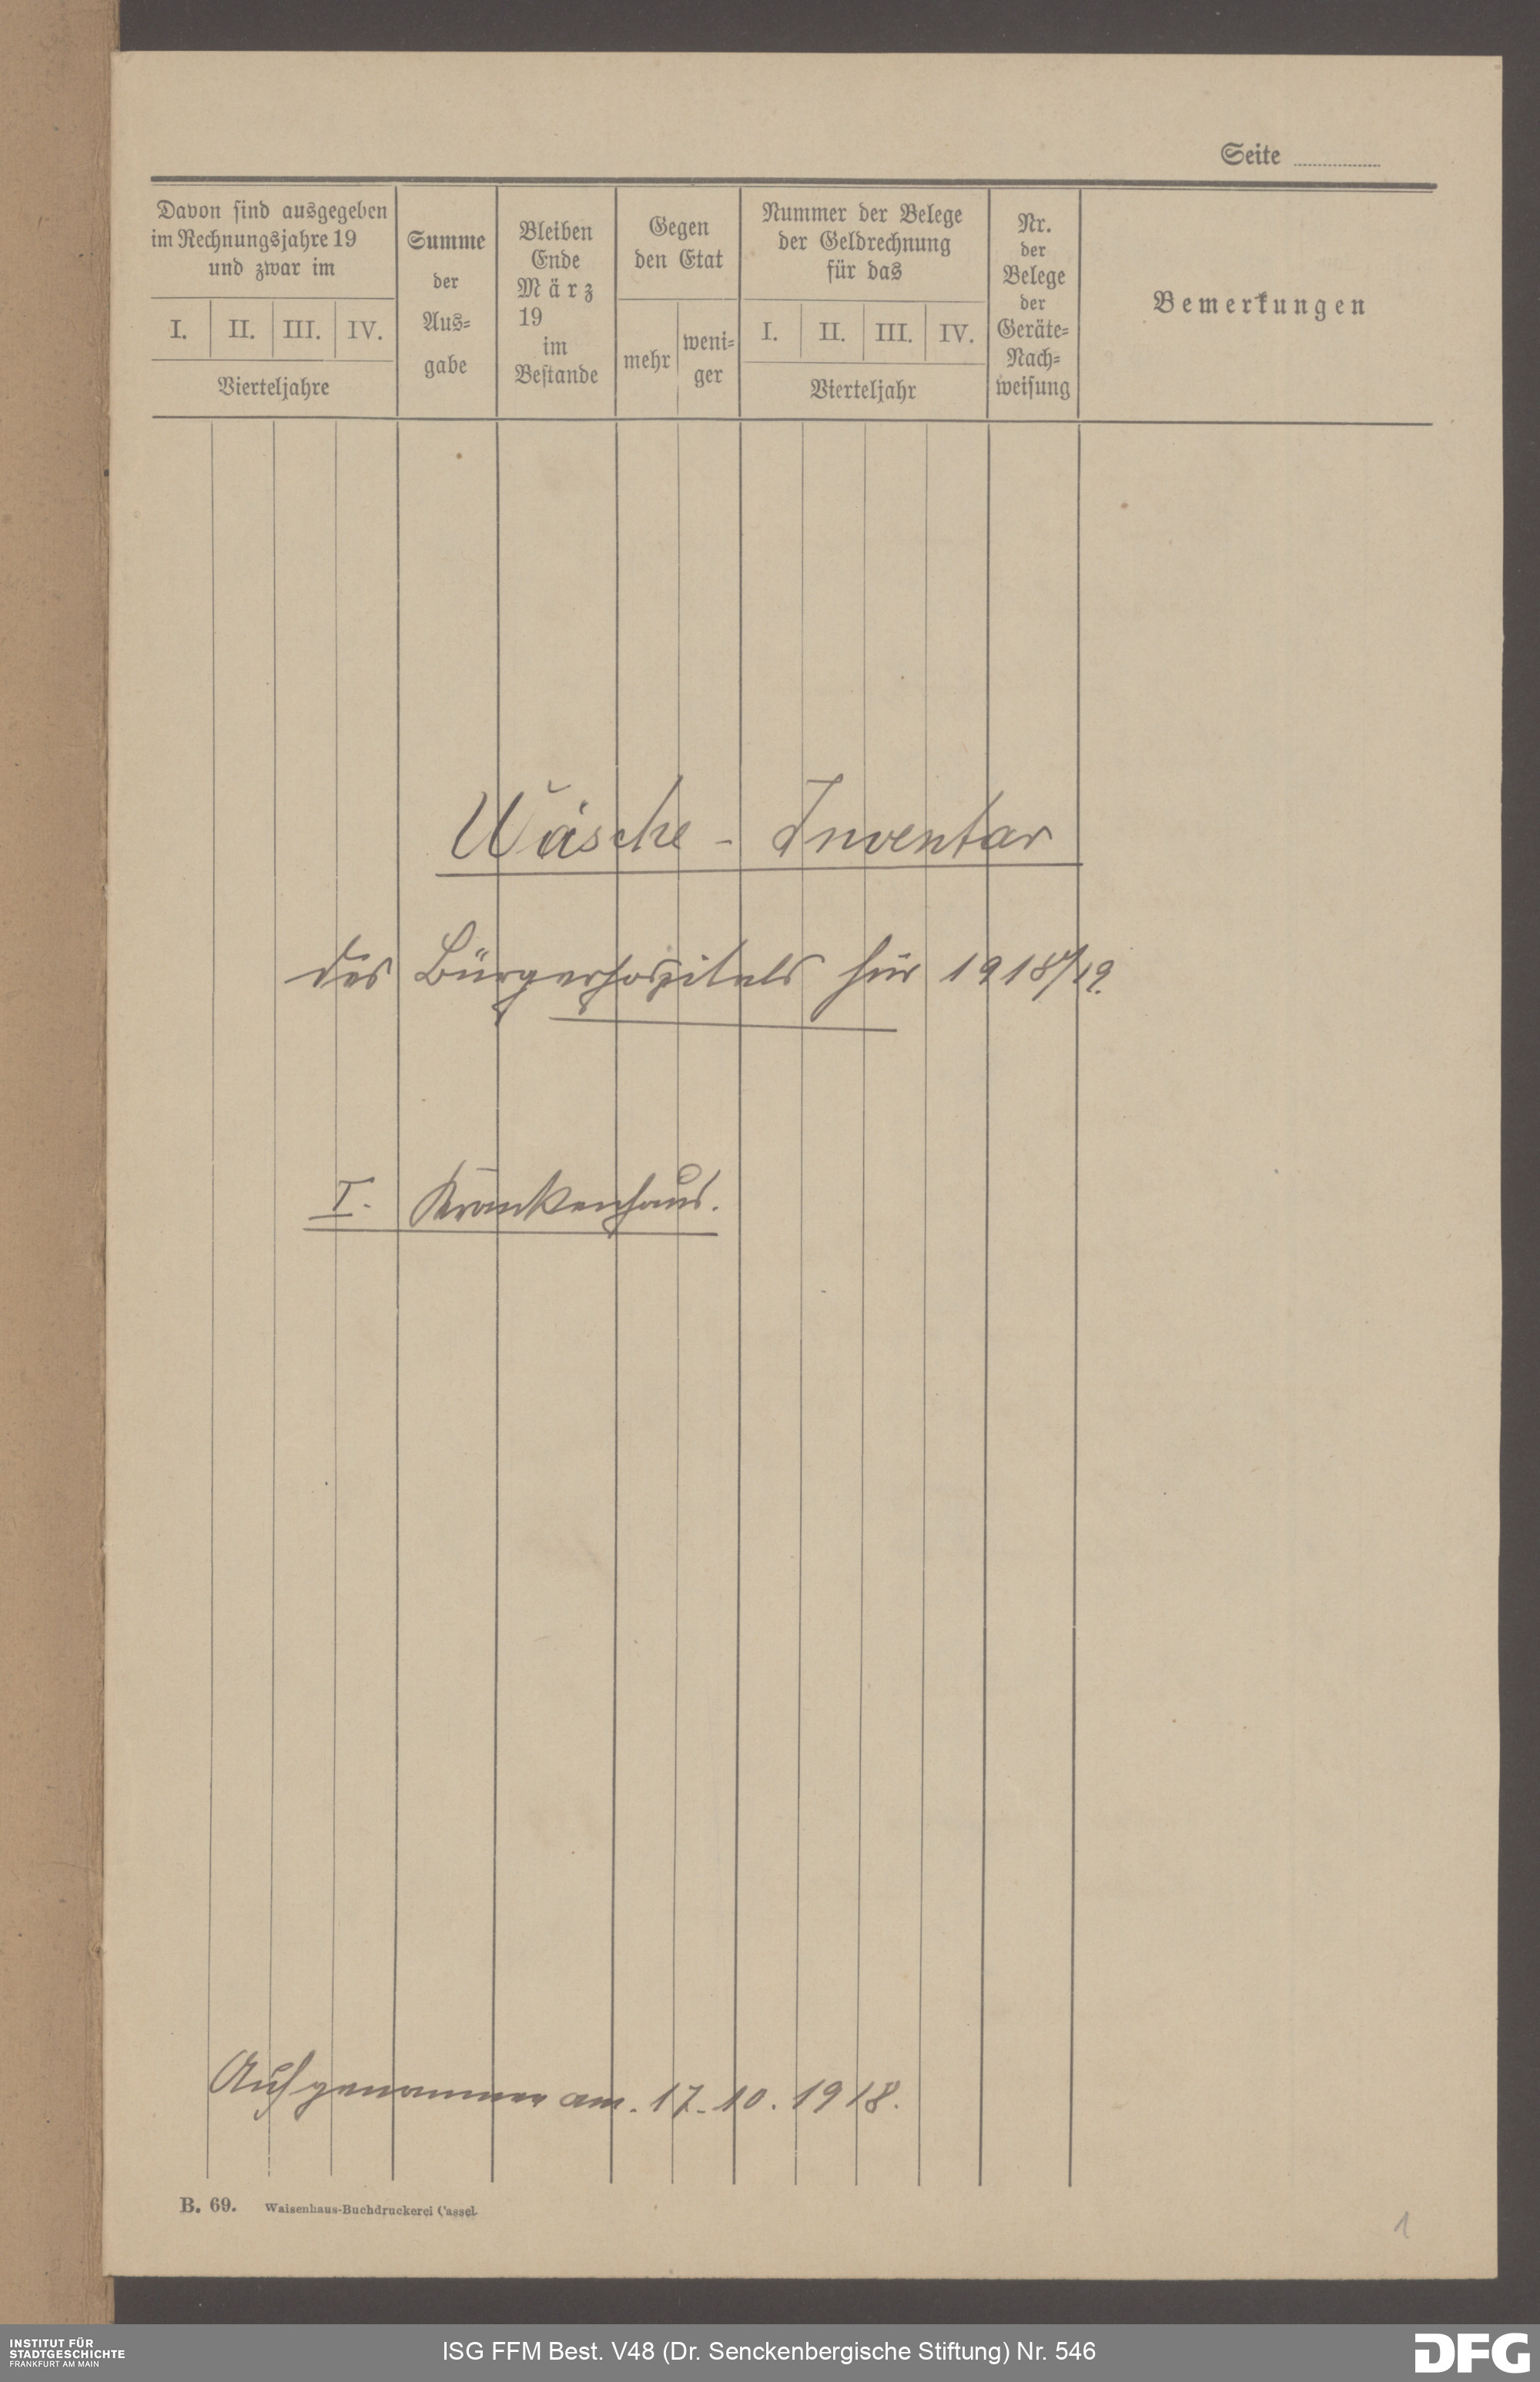 Seite
Davon sind ausgegeben
im Rechnungsjahre 19
und zwar im
I. II. III. IV.
Vierteljahre
Summe
der
Aus-
gabe
Bleiben
Ende
März
19
im
Bestande
Gegen
den Etat
mehr
weni-
ger
Nummer der Belege
der Geldrechnung
für das
I. II. III. IV.
Vierteljahr
Nr.
der
Belege
der
Geräte-
Nach-
weisung
Bemerkungen
Wäsche - Inventar
des Bürgerhospitals für 1918/19.
I. Krankenhaus.
Aufgenommen am. 17.10.1918.
B. 69. Waisenhaus-Buchdruckerei Cassel
1
INSTITUT FÜR
STADTGESCHICHTE
FRANKFURT AM MAIN
ISG FFM Best. V48 (Dr. Senckenbergische Stiftung) Nr. 546
DFG